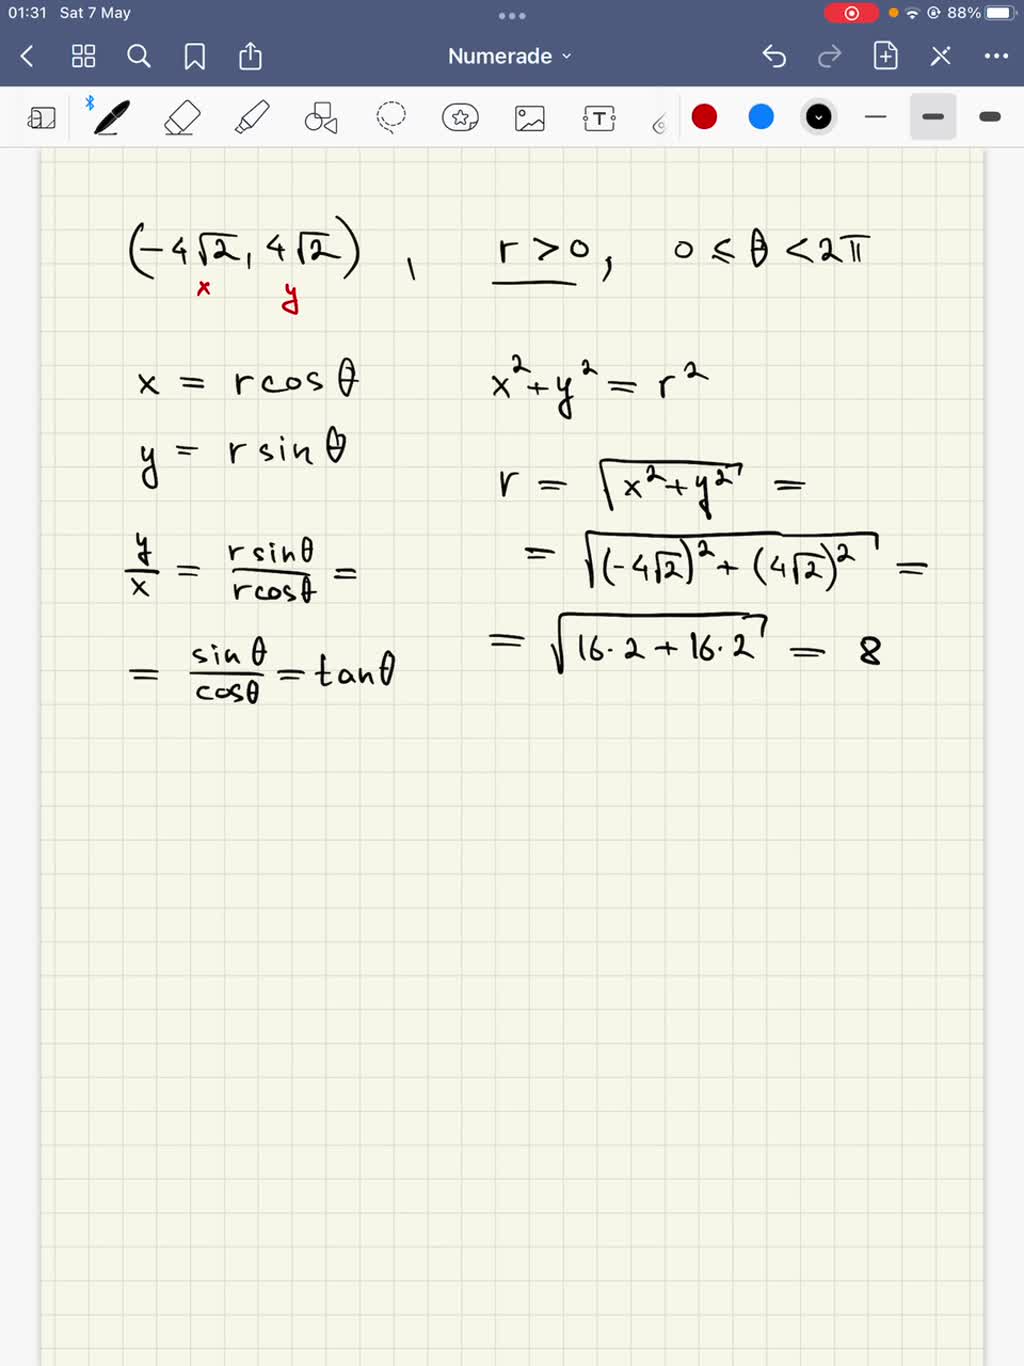 01:31 Sat 7 May
88%
Numerade
(-4√2, 4√2), r > 0, 0 ≤ θ < 2π
x y
x = r cos θ
y = r sin θ
y/x = r sin θ / r cos θ =
= sin θ / cos θ = tan θ
x² + y² = r²
r = √(x² + y²) =
= √((-4√2)² + (4√2)²) =
= √(16·2 + 16·2) = 8